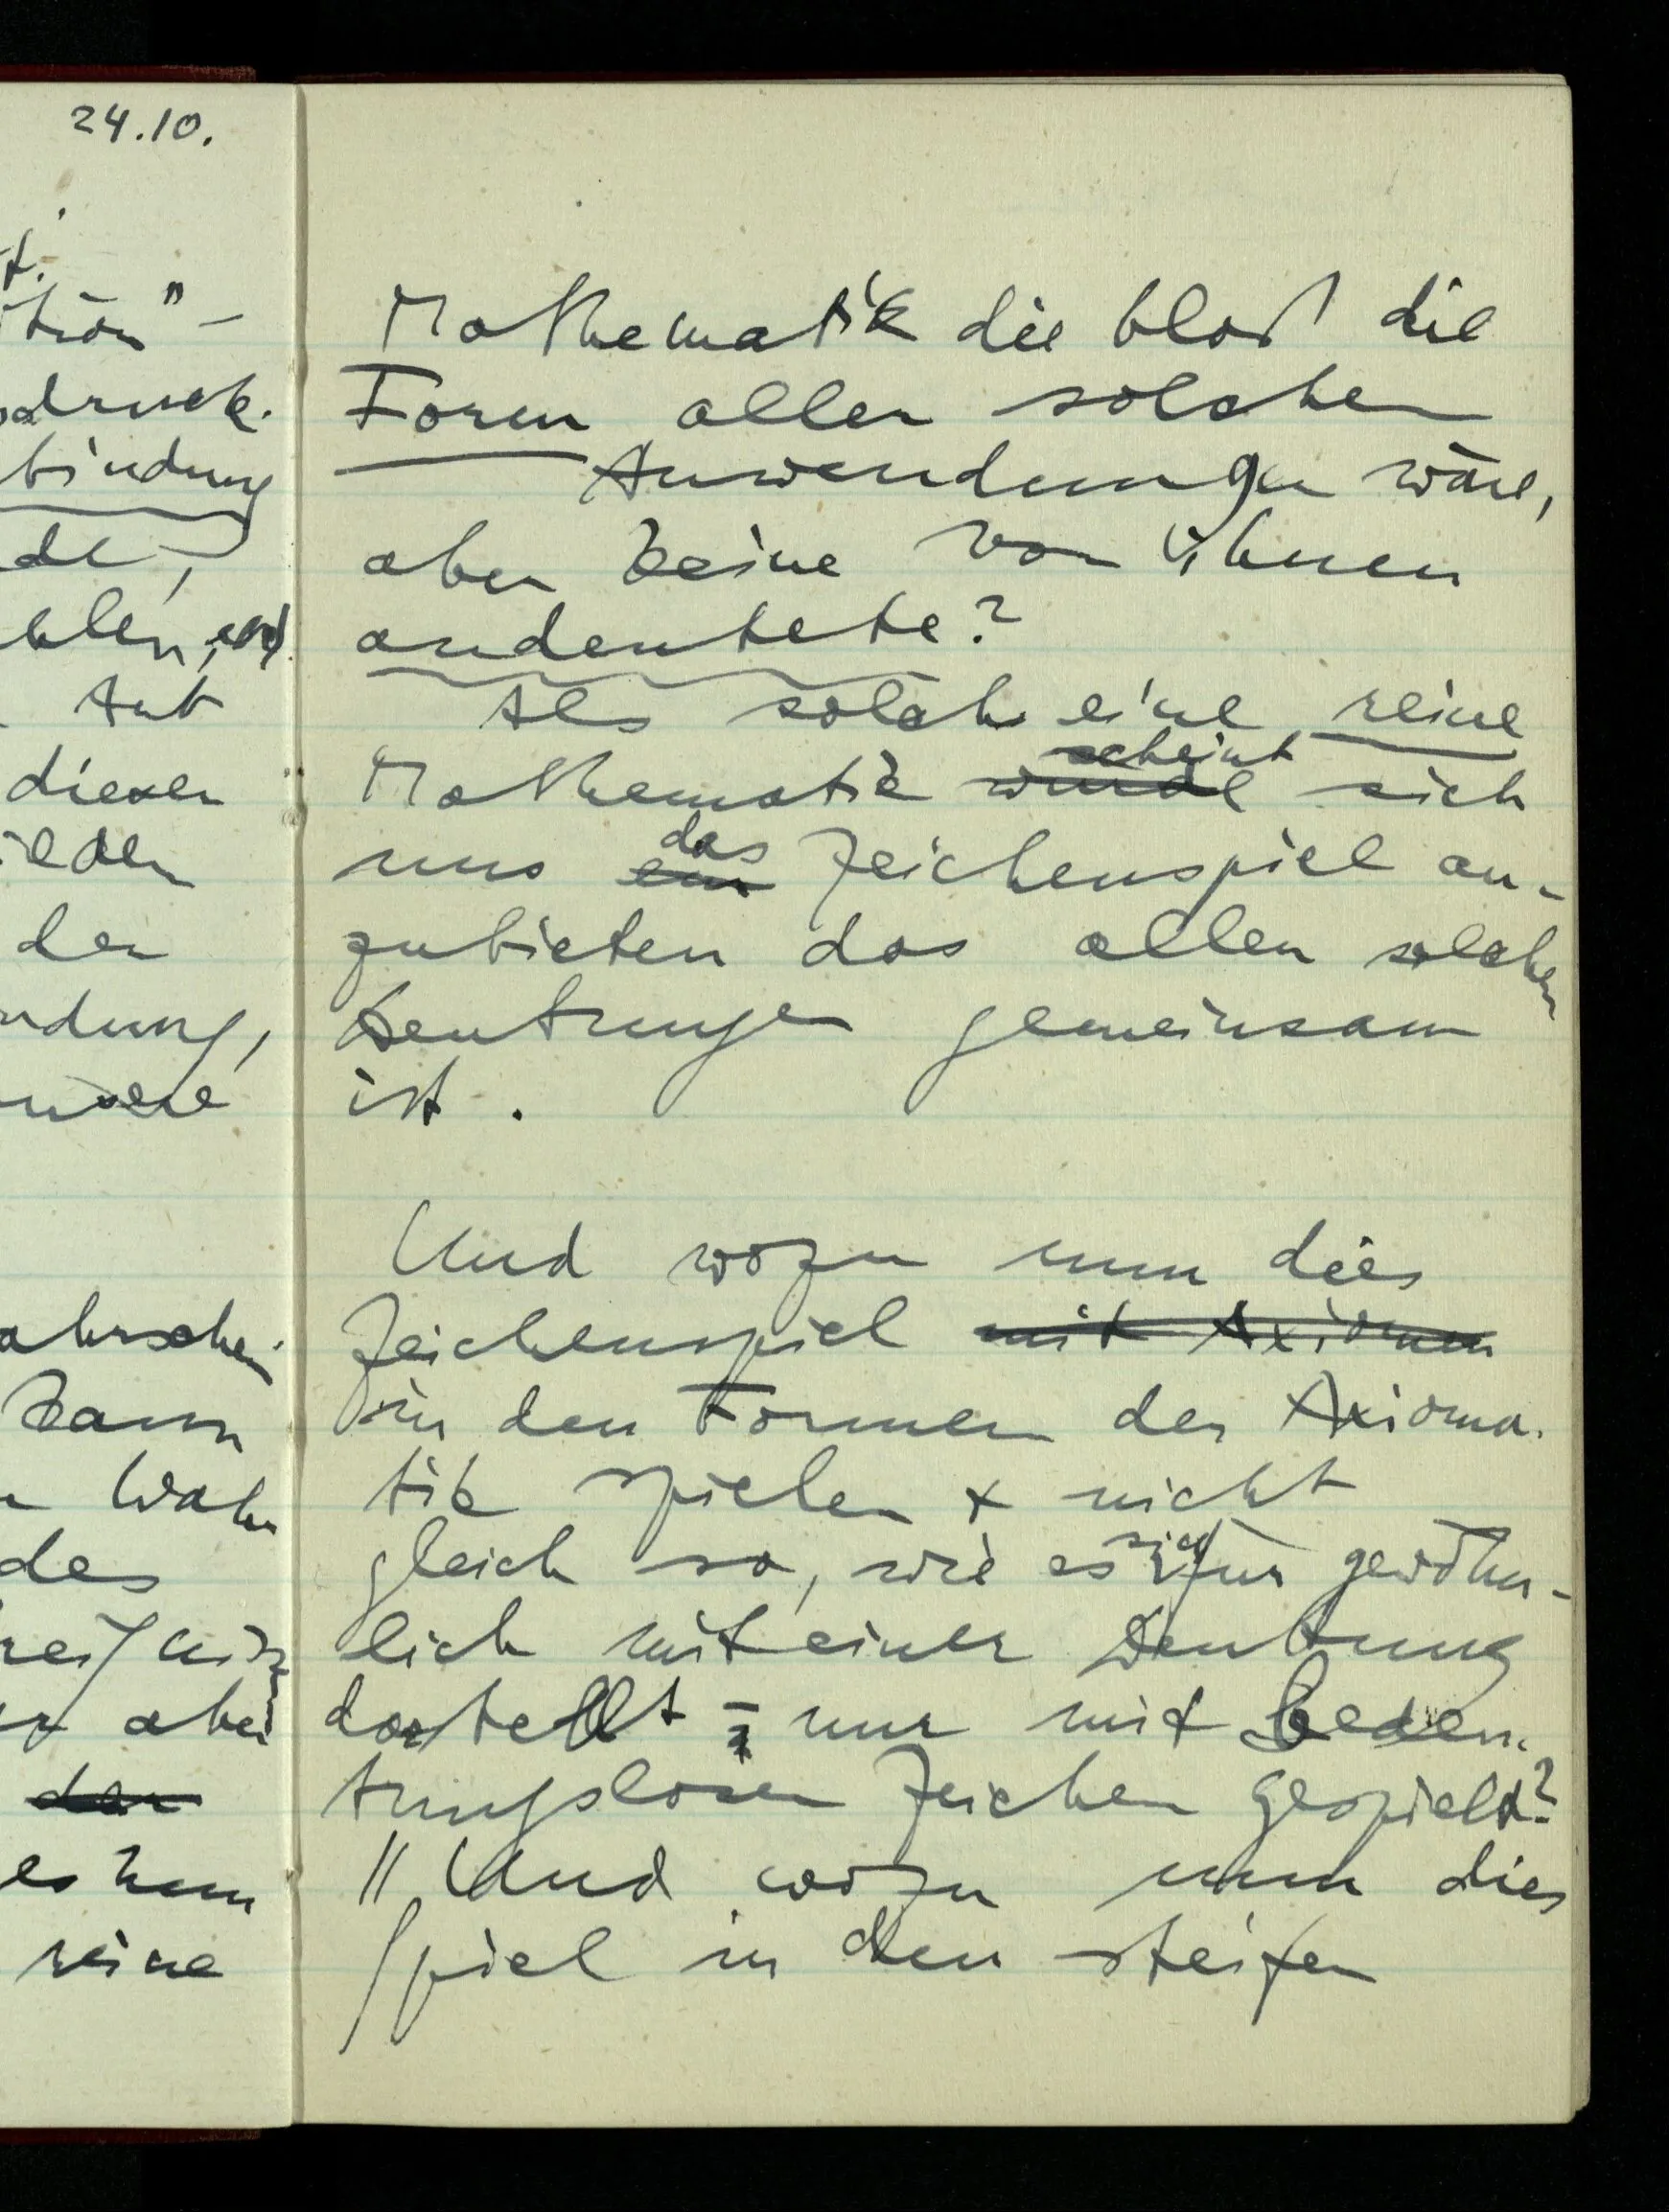 24.10.
druck.
bindung
de,
Art
diesen
der
ndung,
unsere
ahrschei
kann
Wahr
des
aber
der
es kann
reine
Mathematik die bloß die
Form aller solcher
Anwendungen wäre,
aber keine von ihnen
andeutete?
Als solch eine reine
scheint
Mathematik würde sich
das
uns ein Zeichenspiel an-
zubieten das allen solchen
Deutungen gemeinsam
ist.
Und wozu nun dies
Zeichenspiel mit Axiomen
in den Formen der Axioma-
tik spielen + nicht
sich
gleich so, wie es für gewöhn-
lich mit einer Deutung
dastellt – nur mit bedeu-
tungslosen Zeichen gespielt?
|| Und wozu nun dies
Spiel in den steifen